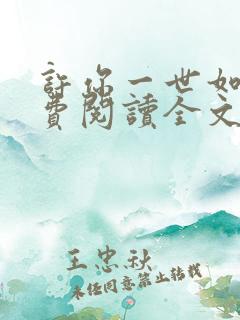 許你一世如
費閱讀全文
王忠秋
未经同意禁止转载